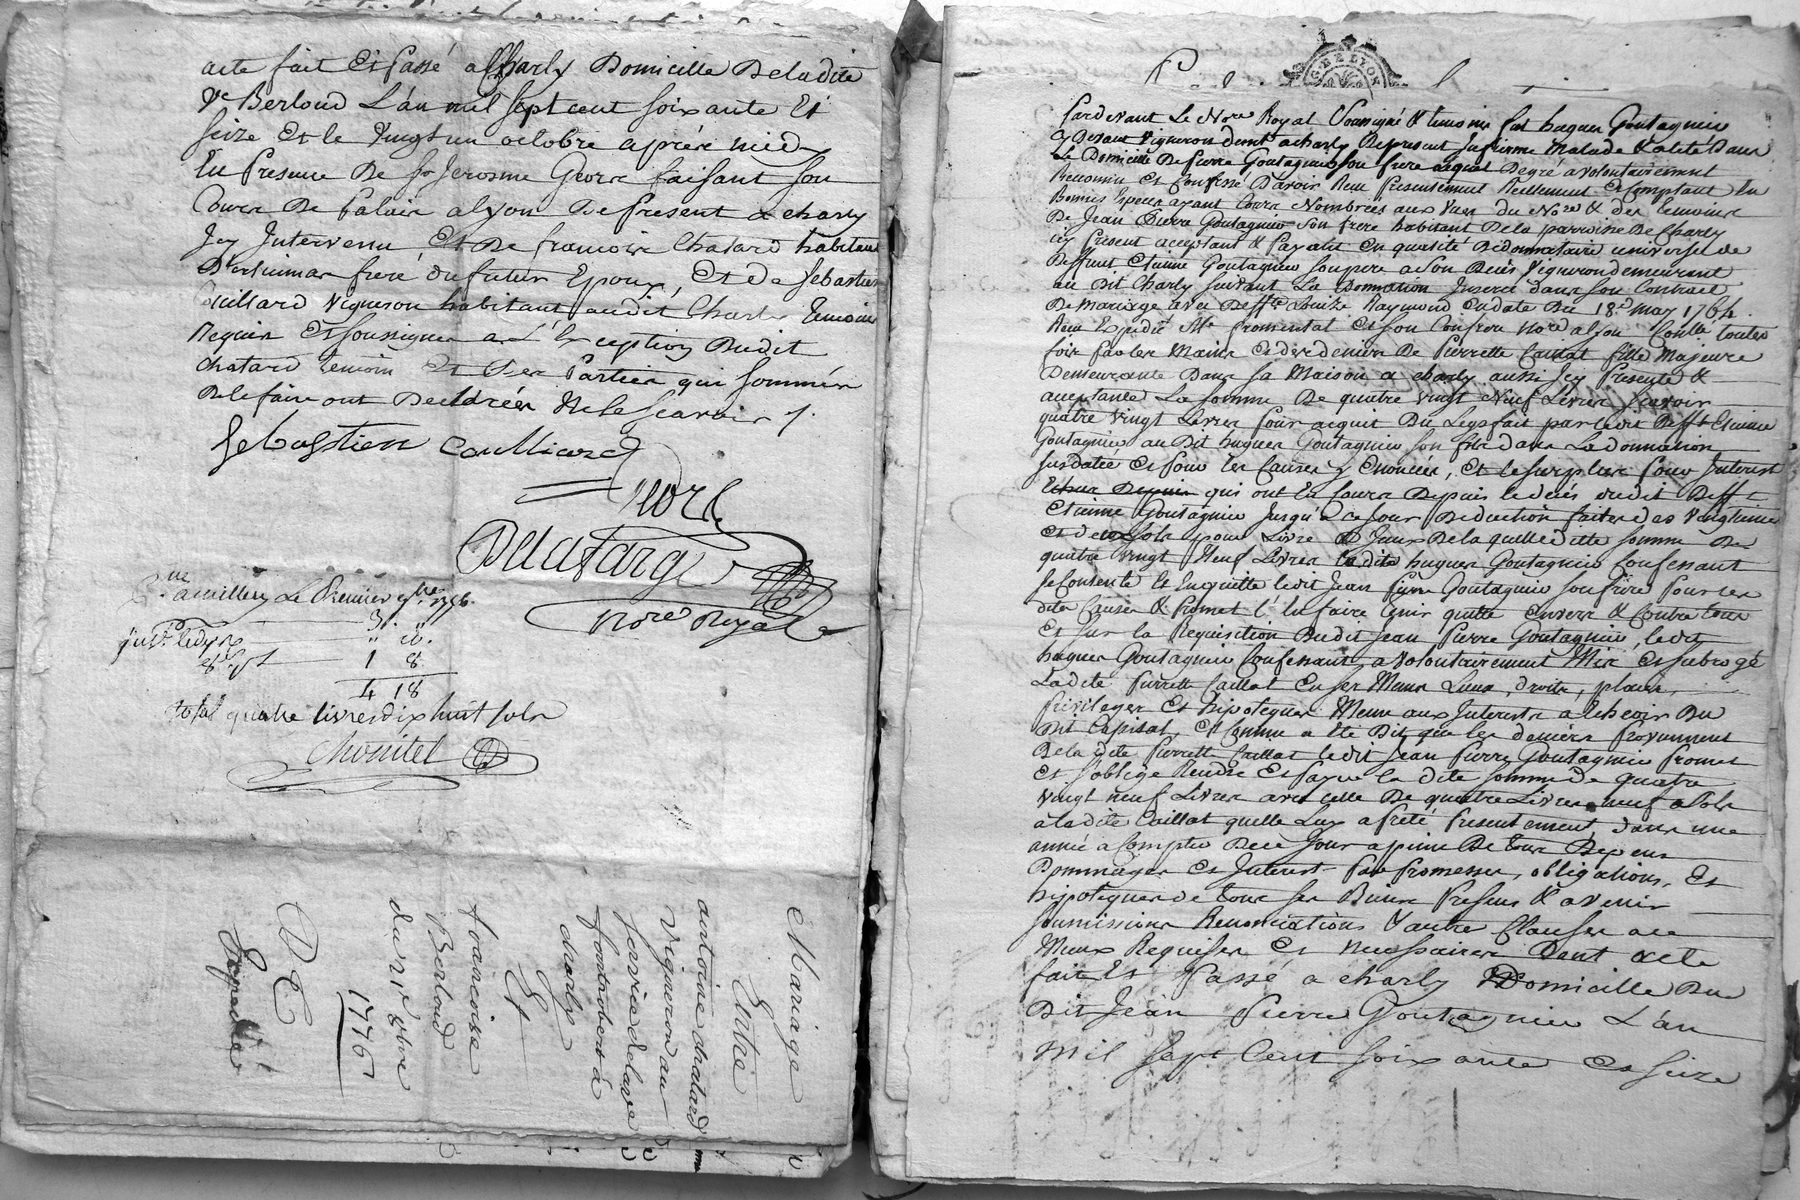 acte fait Et Passé a Charly Domicille De la dite
Ve Berloud L'an mil sept cent soixante Et
seize Et le vingt un octobre après midy
En Presence De sr Jerosme George faisant son
Cours De Palais a lyon De Present a charly
Icy Intervenu Et De francois Chatard habitant
frere du futur Epoux, Et de Sebastien
Cuillard Vigneron habitant audit Charly Temoins
Requis Et soussignés a L'Exception Dudit
chatard temoin Et Des Parties qui sommés
De le faire ont Declarées ne le scavoir /.
Sebastien
Delafarge
Nore Royal
a millery Le Premier 9bre 1776
3 "
" 10.
8s p L 1 8
4 18
total quatre livres dix huit sols
Mariage
Entre
antoine chatard
Vigneron au
service de la ve
fontrobert a
charly
Et
francoise
Berloud
du 21 8bre
1776
Expedié
G. DE LYON
Pardevant Le Nore Royal Soussigné & temoins fut hugues Goutagnieu
cy Devant Vigneron demt a charly De present Infirme malade & alité Dans
Le Domicille De Pierre Goutagnieu son frere lequel De gré a volontairement
Reconnu Et Confessé D'avoir Reçu Presentement Reellement Et Comptant En
Bonnes Especes ayant Cours Nombrées aux Vues du Nore & des temoins
De Jean Pierre Goutagnieu son frere habitant De la parroisse De Charly
icy Present acceptant & Payant En qualité De donnataire universel de
Deffunt Etienne Goutagnieu son pere a son Deces Vigneron demeurant
au Dit Charly suivant La Donnation Inserée dans son Contrat
De Mariage avec Deffte Louise Raymond En date Du 18e may 1764.
Reçu & Expedié Me fromental Et son Confrere Nore a lyon Contté toutes
fois Par les Mains Et des deniers De Pierrette Caillat fille Majeure
Demeurante Dans sa Maison a charly aussi Icy Presente &
acceptante La somme De quatre vingt Neuf Livres scavoir
quatre vingt Livres Pour acquit Du Legs fait par ledit Defft Etienne
Goutagnieu au Dit hugues Goutagnieu son fils dans La donnation
susdatée Et Pour les Causes y Enoncées, Et le surplus Pour Interest
qui ont Eu Cours Depuis le deces dudit Defft
Etienne Goutagnieu Jusqu'a ce Jour Deduction faite des vingtiemes
et deux sols pour Livre De laquelle ditte somme De
quatre vingt Neuf Livres ledit hugues Goutagnieu Confessant
se Contente & En quitte ledit Jean Pierre Goutagnieu son frere Pour les
dites Causes & Promet L'En faire tenir quitte Envers & Contre tous
Et sur la Requisition Dudit Jean Pierre Goutagnieu, ledit
hugues Goutagnieu Confessant, a volontairement Mis Et subrogé
Ladite Pierrette Caillat En ses Meme Lieux, droits, place,
Privileges Et hipoteques Meme aux Interests a Echeoir Du
Dit Capital, Et Comme a Eté Dit que les deniers Proviennent
De la dite Pierrette Caillat ledit Jean Pierre Goutagnieu Promet
Et s'oblige Rendre Et Payer la dite somme De quatre
vingt neuf Livres avec celle De quatre Livres neuf sols
a la dite Caillat quelle Luy a Preté Presentement, dans une
année a Compter De ce Jour a peine De tous Depens
Dommages Et Interest Par Promesses, obligations, Et
hipoteques de tous ses Biens Presens & avenir
soumissions Renonciations & autres Clauses au
Mieux Requises Et necessaires Dont acte
fait Et Passé a charly Domicille Du
Dit Jean Pierre Goutagnieu L'an
Mil sept Cent soixante Et seize